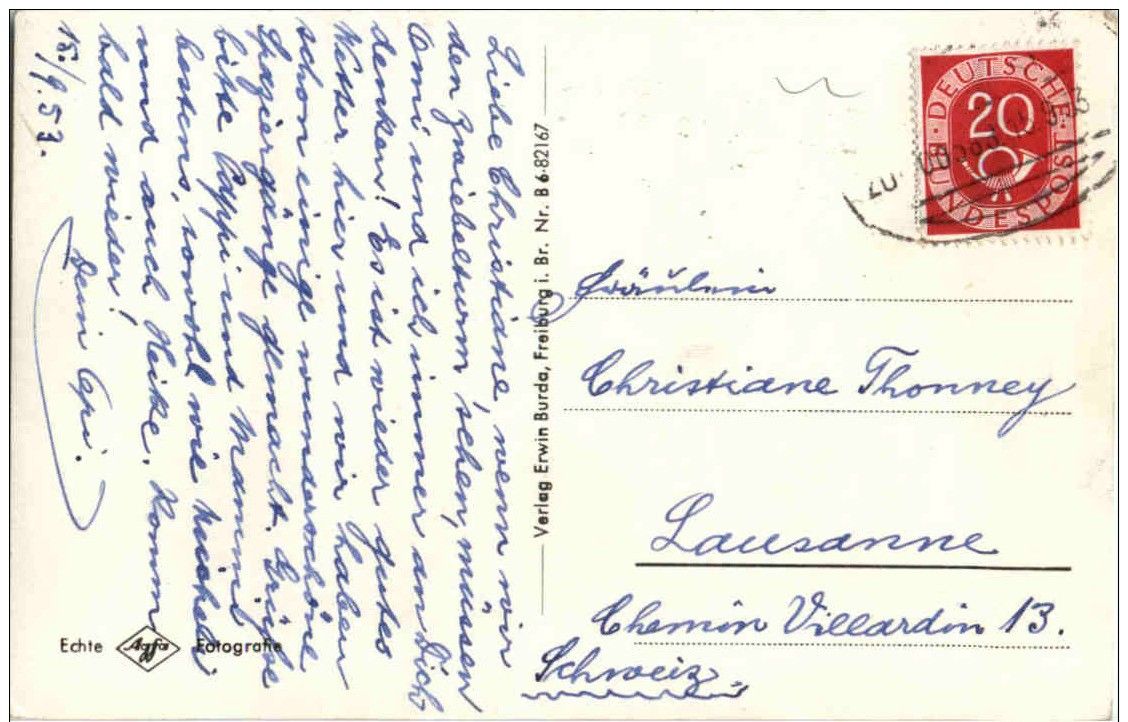 Liebe Christiane, wenn wir
den Zwiebelturm sehen, müssen
Omi und ich immer an Dich
denken! Es ist wieder gutes
Wetter hier und wir haben
schon einige wunderschöne
Spaziergänge gemacht. Grüsse
bitte Pappi und Mammi
bestens, sowohl wie Micheli
und auch Heike. Komm
bald wieder!
Dein Opi.
15./9.53.
Echte Agfa Fotografie
Verlag Erwin Burda, Freiburg i. Br. Nr. B 6·82167
DEUTSCHE BUNDESPOST
20
Fräulein
Christiane Thonney
Lausanne
Chemin Villardin 13.
Schweiz